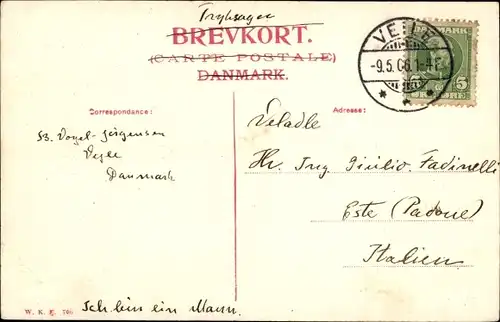 Tryksager
BREVKORT.
(CARTE POSTALE)
DANMARK.
VEJLE
-9.5.06.1-4E
DANMARK
5
5
Correspondance:
Adresse:
B. Vogel-Jörgensen
Vejle
Danmark
Veladle
Hr. Ing Giulio. Fadinelli
Este (Padone)
Italien
Ich bin ein Mann.
W. K. E. 766